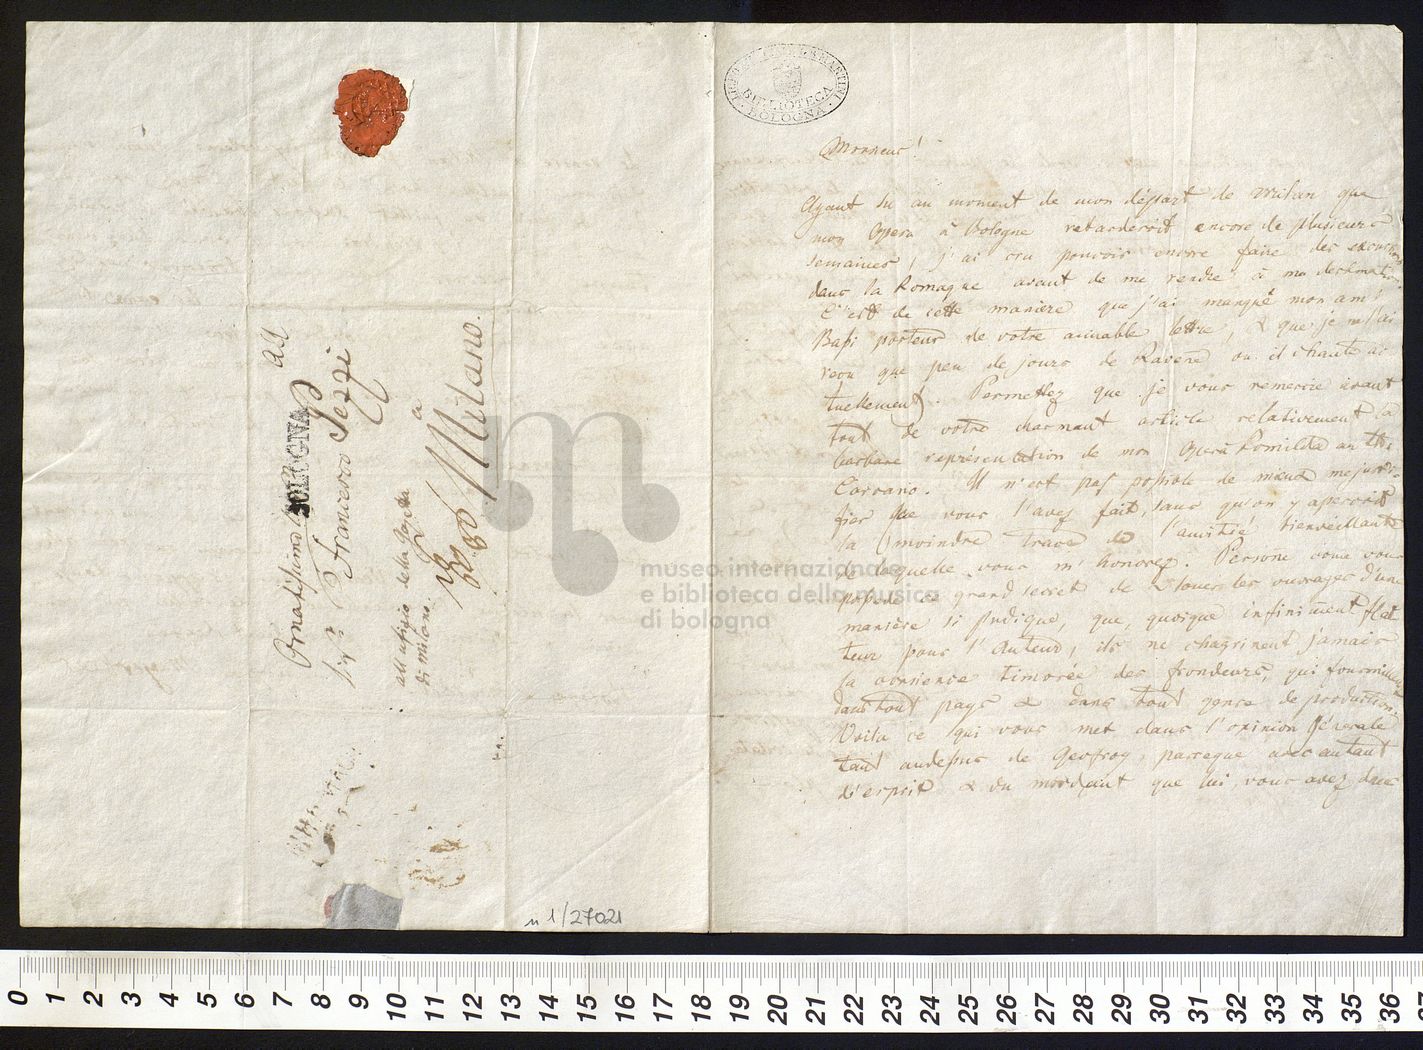 All
Ornatissimo
BOLOGNA
Sigr Francesco Pezzi
all'ufizio della Gazetta
di Milano.
a
Milano.
n 1/27021
LICEO MUSICALE G. B. MARTINI
BIBLIOTECA
BOLOGNA
Monsieur!
Ayant su au moment de mon départ de Milan que
mon Opera à Bologne retarderoit encore de plusieurs
semaines, j'ai cru pouvoir encore faire des excursions
dans la Romagne avant de me rendre à ma destination.
C'est de cette manière que j'ai manqué mon ami
Bassi porteur de votre aimable lettre, & que je ne l'ai
reçu que peu de jours de Ravene ou il chante ac
tuellement. Permettez que je vous remercie avant
tout de votre charmant article relativement la
barbare représentation de mon Opera Romilda au The
Carcano. Il n'est pas possible de mieux me justi-
fier que vous l'avez fait, sans qu'on y aperçoit
la moindre trace de l'amitié bienveillante
de laquelle vous m'honorez. Persone come vous
possede ce grand secret de louer les ouvrages d'une
manière si judique, que, quoique infiniment flat
teur pour l'Auteur, ils ne chagrinent jamais
la consience timorée des frondeurs, qui fourmillent
dans tout pays & dans tout genre de production.
Voila ce qui vous met dans l'opinion générale
tant audessus de Geofroy, parceque avec autant
d'esprit & du mordant que lui, vous avez dans
museo internazionale
e biblioteca della musica
di bologna
0 1 2 3 4 5 6 7 8 9 10 11 12 13 14 15 16 17 18 19 20 21 22 23 24 25 26 27 28 29 30 31 32 33 34 35 36 37